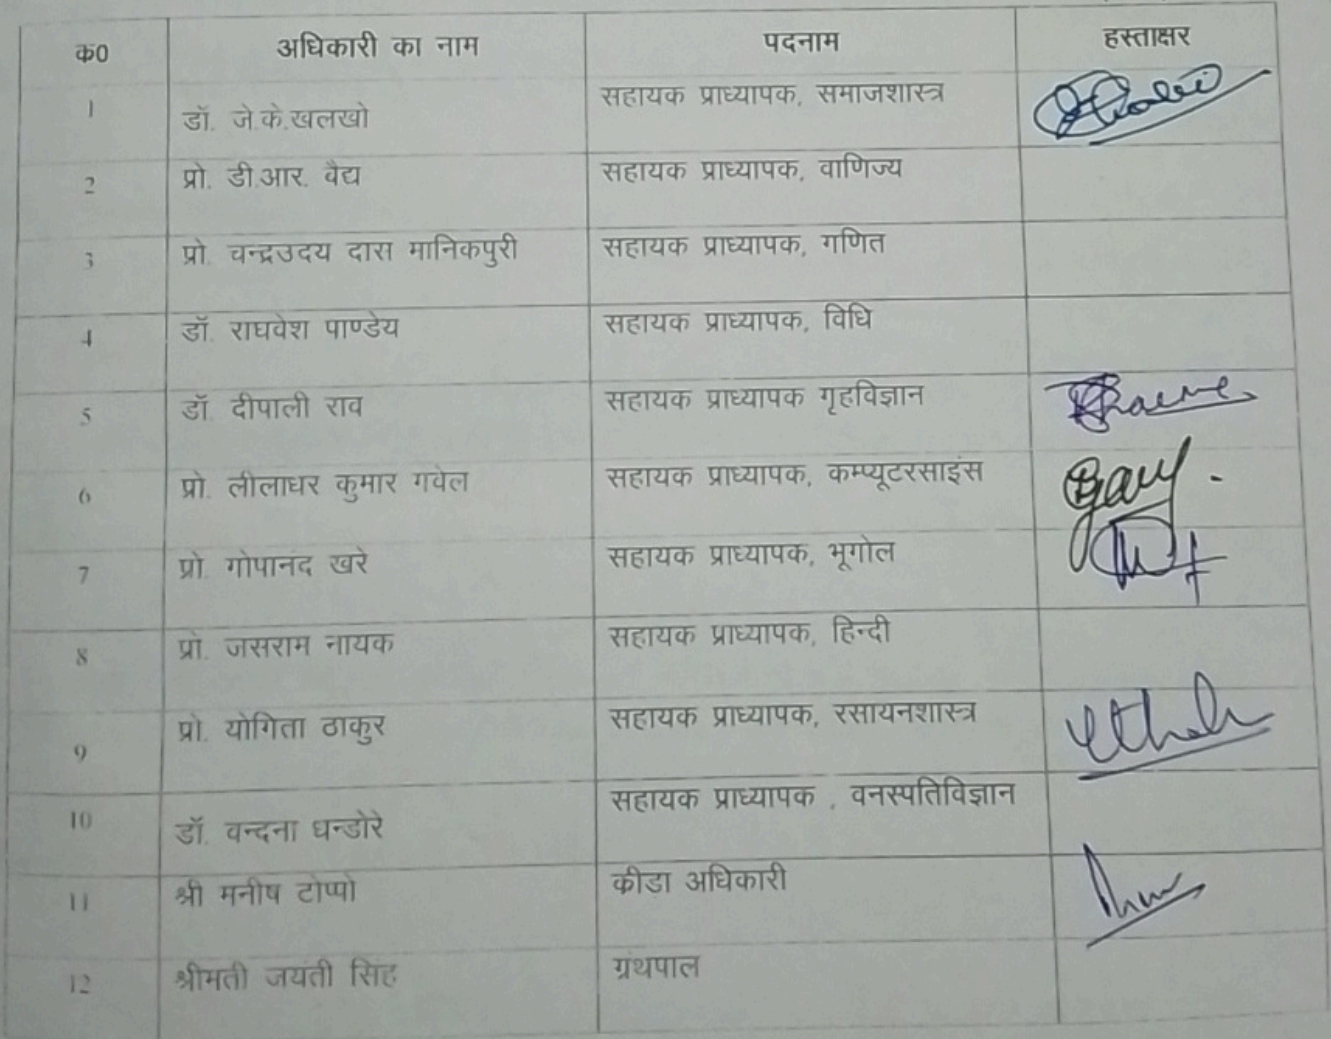 क0 अधिकारी का नाम पदनाम हस्ताक्षर
1 डॉ. जे.के.खलखो सहायक प्राध्यापक, समाजशास्त्र
2 प्रो. डी.आर. वैद्य सहायक प्राध्यापक, वाणिज्य
3 प्रो. चन्द्रउदय दास मानिकपुरी सहायक प्राध्यापक, गणित
4 डॉ. राघवेश पाण्डेय सहायक प्राध्यापक, विधि
5 डॉ. दीपाली राव सहायक प्राध्यापक गृहविज्ञान
6 प्रो. लीलाधर कुमार गवेल सहायक प्राध्यापक, कम्प्यूटरसाइंस
7 प्रो. गोपानंद खरे सहायक प्राध्यापक, भूगोल
8 प्रो. जसराम नायक सहायक प्राध्यापक, हिन्दी
9 प्रो. योगिता ठाकुर सहायक प्राध्यापक, रसायनशास्त्र
10 डॉ. वन्दना धन्डोरे सहायक प्राध्यापक , वनस्पतिविज्ञान
11 श्री मनीष टोप्पो कीडा अधिकारी
12 श्रीमती जयंती सिंह ग्रंथपाल